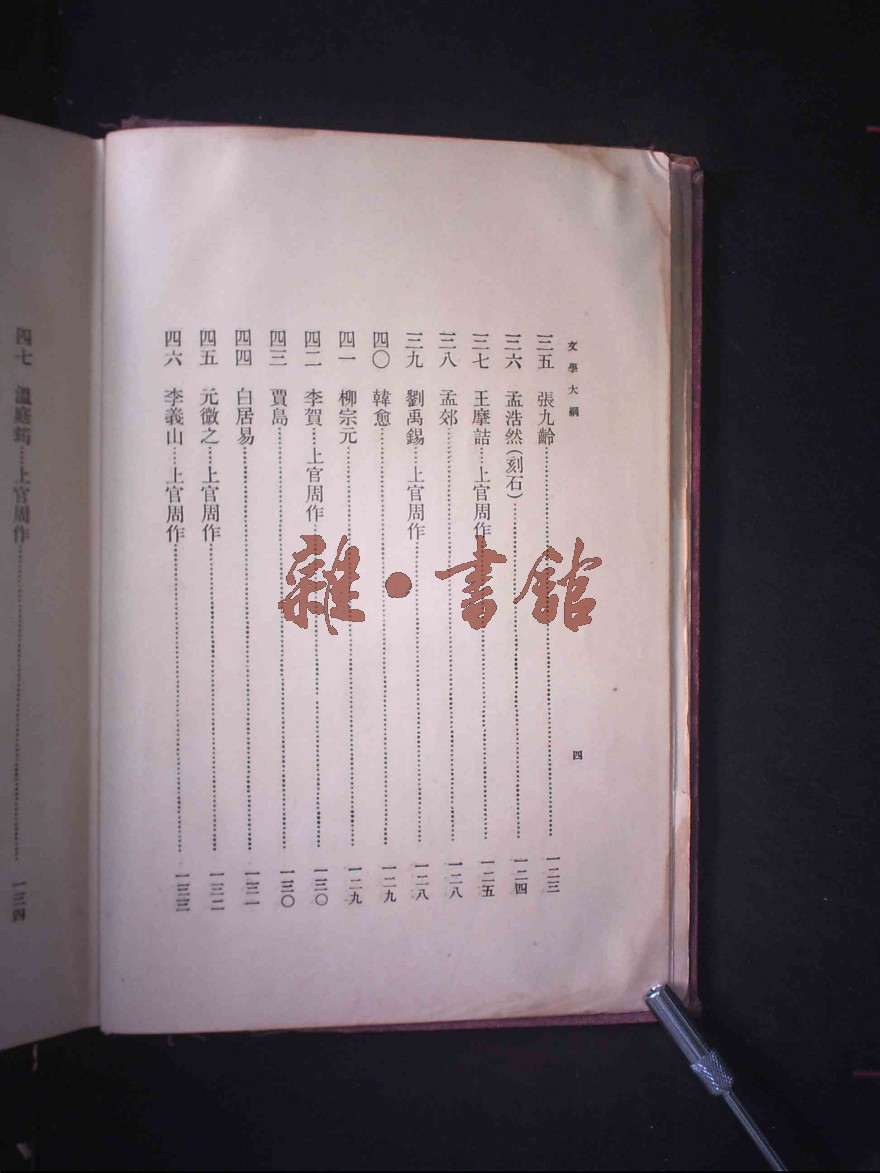 文學大綱
四
三五 張九齡……一二三
三六 孟浩然(刻石)……一二四
三七 王摩詰……上官周作……一二五
三八 孟郊……一二八
三九 劉禹錫……上官周作……一二八
四〇 韓愈……一二九
四一 柳宗元……一二九
四二 李賀……上官周作……一三〇
四三 賈島……一三〇
四四 白居易……一三一
四五 元微之……上官周作……一三二
四六 李義山……上官周作……一三三
四七 溫庭筠……上官周作……一三四
雜·書館